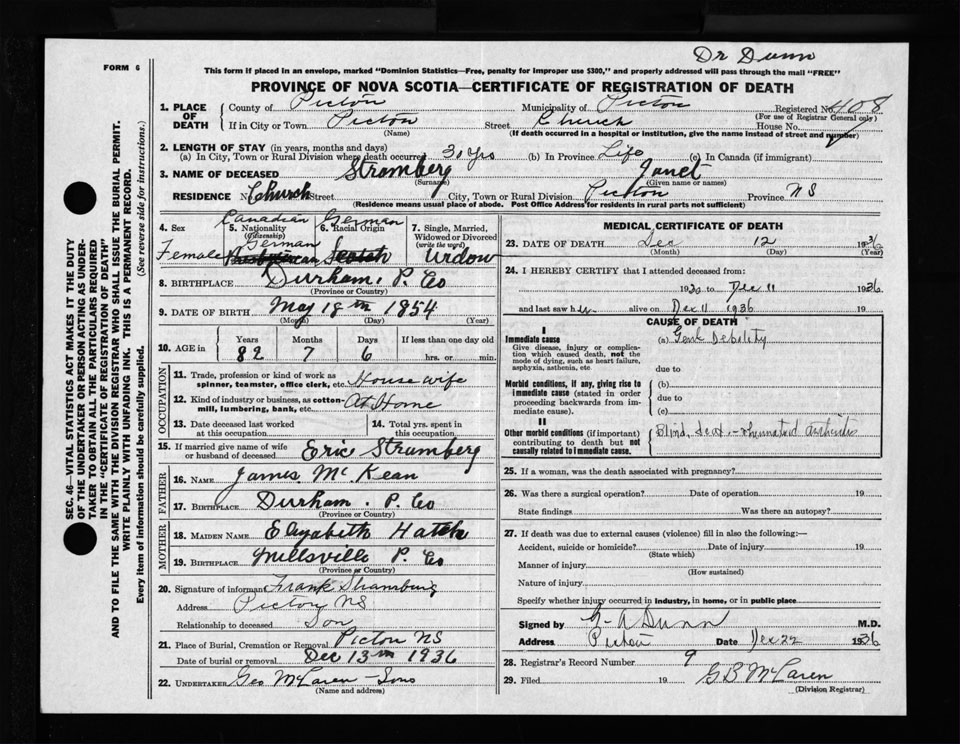 Dr Dunn
FORM 6
This form if placed in an envelope, marked "Dominion Statistics—Free, penalty for improper use $300," and properly addressed will pass through the mail "FREE"
PROVINCE OF NOVA SCOTIA—CERTIFICATE OF REGISTRATION OF DEATH
1. PLACE OF DEATH
County of Pictou Municipality of Pictou Registered No. 408
(For use of Registrar General only)
If in City or Town Pictou Street Church House No.
(Name) (If death occurred in a hospital or institution, give the name instead of street and number)
2. LENGTH OF STAY (in years, months and days)
(a) In City, Town or Rural Division where death occurred 30 yrs (b) In Province Life (c) In Canada (if immigrant)
3. NAME OF DECEASED Stromberg Janet
(Surname) (Given name or names)
RESIDENCE N Church Street City, Town or Rural Division Pictou Province NS
(Residence means usual place of abode. Post Office Address for residents in rural parts not sufficient)
4. Sex Female
5. Nationality (Citizenship) Canadian German
6. Racial Origin German Scotch
7. Single, Married, Widowed or Divorced (write the word) Widow
8. BIRTHPLACE Durham, P. Co
(Province or Country)
9. DATE OF BIRTH May 18th 1854
(Month) (Day) (Year)
10. AGE in Years 82 Months 7 Days 6 If less than one day old
hrs. or min.
OCCUPATION
11. Trade, profession or kind of work as spinner, teamster, office clerk, etc. House wife
12. Kind of industry or business, as cotton-mill, lumbering, bank, etc. At Home
13. Date deceased last worked at this occupation
14. Total yrs. spent in this occupation
15. If married give name of wife or husband of deceased Eric Stromberg
FATHER
16. NAME James McKean
17. BIRTHPLACE Durham. P. Co
(Province or Country)
MOTHER
18. MAIDEN NAME Elizabeth Hatch
19. BIRTHPLACE Millsville P. Co
(Province or Country)
20. Signature of informant Frank Stramburg
Address Pictou NS
Relationship to deceased Son
21. Place of Burial, Cremation or Removal Pictou NS
Date of burial or removal Dec 13th 1936
22. UNDERTAKER Geo McLaren - Sons
(Name and address)
MEDICAL CERTIFICATE OF DEATH
23. DATE OF DEATH Dec 12 1936
(Month) (Day) (Year)
24. I HEREBY CERTIFY that I attended deceased from:
1930 to Dec 11 1936
and last saw her alive on Dec 11 1936 19
CAUSE OF DEATH
I
Immediate cause (a) Genl Debility
Give disease, injury or complication which caused death, not the mode of dying, such as heart failure, asphyxia, asthenia, etc.
due to
Morbid conditions, if any, giving rise to immediate cause (stated in order proceeding backwards from immediate cause).
(b)
due to
(c)
II
Other morbid conditions (if important) contributing to death but not causally related to immediate cause.
Blind, deaf, - rheumatoid arthritis
25. If a woman, was the death associated with pregnancy?
26. Was there a surgical operation? Date of operation 19
State findings Was there an autopsy?
27. If death was due to external causes (violence) fill in also the following:—
Accident, suicide or homicide? Date of injury 19
(State which)
Manner of injury
(How sustained)
Nature of injury
Specify whether injury occurred in industry, in home, or in public place
Signed by G. A Dunn M.D.
Address Pictou Date Dec 22 1936
28. Registrar's Record Number 9
29. Filed 19 G B McLaren
(Division Registrar)
SEC. 46—VITAL STATISTICS ACT MAKES IT THE DUTY
OF THE UNDERTAKER OR PERSON ACTING AS UNDER-
TAKER TO OBTAIN ALL THE PARTICULARS REQUIRED
IN THE "CERTIFICATE OF REGISTRATION OF DEATH"
AND TO FILE THE SAME WITH THE DIVISION REGISTRAR WHO SHALL ISSUE THE BURIAL PERMIT.
WRITE PLAINLY WITH UNFADING INK. THIS IS A PERMANENT RECORD.
Every item of information should be carefully supplied. (See reverse side for instructions.)